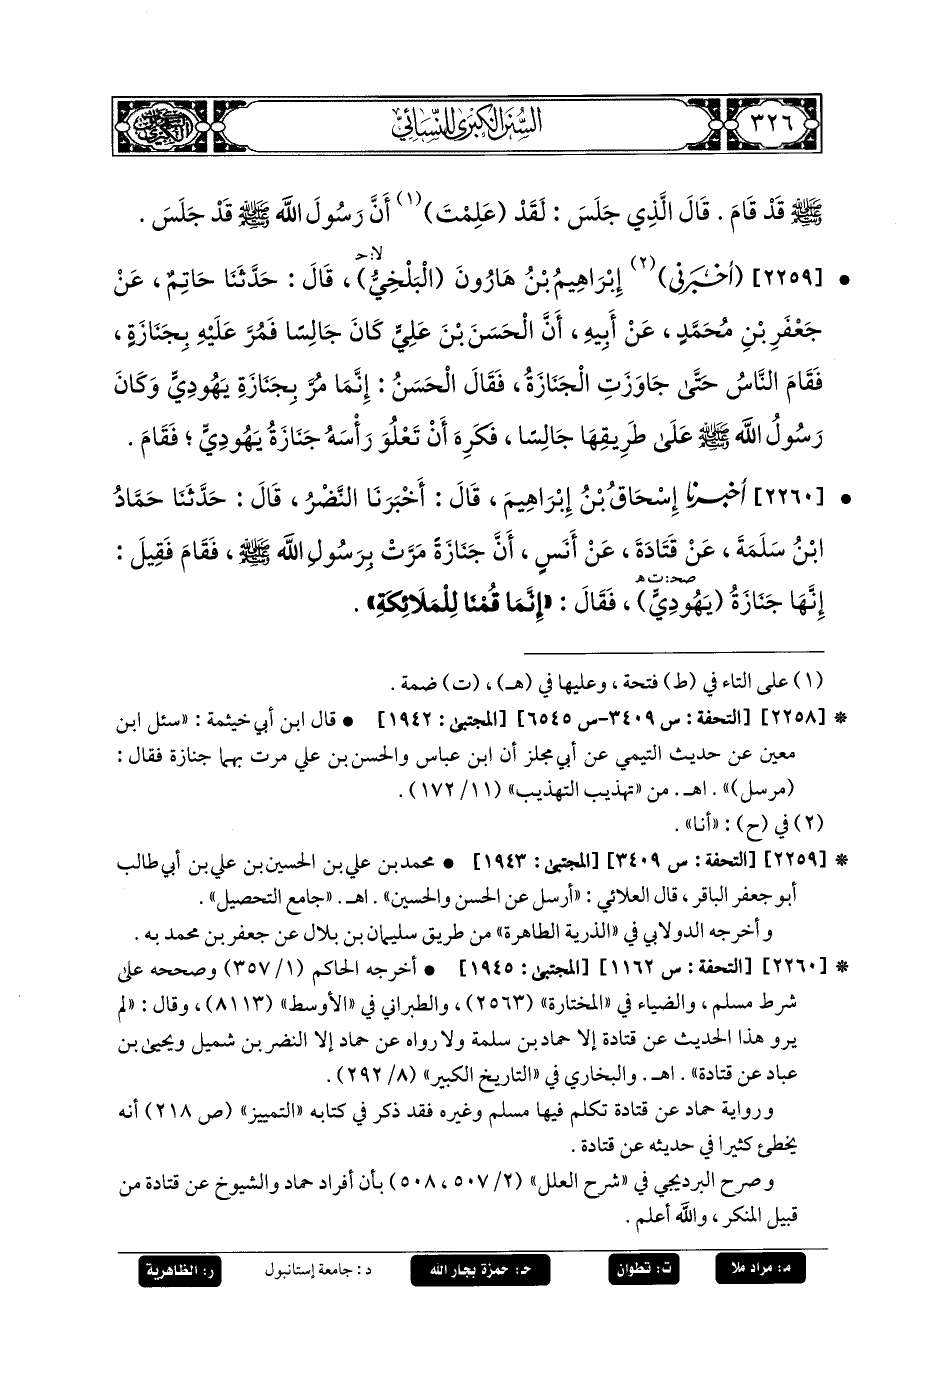 ٣٢٦
السنن الكبرى للنسائي
ﷺ قَدْ قَامَ . قَالَ الَّذِي جَلَسَ : لَقَدْ (عَلِمْتَ)(١) أَنَّ رَسُولَ اللَّه ﷺ قَدْ جَلَسَ .
لا:حـ
• [٢٢٥٩] (أَخْبَرَنِي)(٢) إِبْرَاهِيمُ بْنُ هَارُونَ (الْبَلْخِيُّ) ، قَالَ : حَدَّثَنَا حَاتِمٌ ، عَنْ
جَعْفَرِ بْنِ مُحَمَّدٍ ، عَنْ أَبِيهِ ، أَنَّ الْحَسَنَ بْنَ عَلِيٍّ كَانَ جَالِسًا فَمُرَّ عَلَيْهِ بِجَنَازَةٍ ،
فَقَامَ النَّاسُ حَتَّى جَاوَزَتِ الْجَنَازَةُ ، فَقَالَ الْحَسَنُ : إِنَّمَا مُرَّ بِجَنَازَةِ يَهُودِيٍّ وَكَانَ
رَسُولُ اللَّه ﷺ عَلَى طَرِيقِهَا جَالِسًا ، فَكَرِهَ أَنْ تَعْلُوَ رَأْسَهُ جَنَازَةُ يَهُودِيٍّ ؛ فَقَامَ .
• [٢٢٦٠] أَخْبَرَنَا إِسْحَاقُ بْنُ إِبْرَاهِيمَ ، قَالَ : أَخْبَرَنَا النَّضْرُ ، قَالَ : حَدَّثَنَا حَمَّادُ
ابْنُ سَلَمَةَ ، عَنْ قَتَادَةَ ، عَنْ أَنَسٍ ، أَنَّ جَنَازَةً مَرَّتْ بِرَسُولِ اللَّه ﷺ ، فَقَامَ فَقِيلَ :
صحـ:ت هـ
إِنَّهَا جَنَازَةُ (يَهُودِيٍّ) ، فَقَالَ : «إِنَّمَا قُمْنَا لِلْمَلَائِكَةِ» .
(١) على التاء في (ط) فتحة ، وعليها في (هـ) ، (ت) ضمة .
* [٢٢٥٨] [التحفة : س ٣٤٠٩-س ٦٥٤٥] [المجتبى : ١٩٤٢] • قال ابن أبي خيثمة : «سئل ابن
معين عن حديث التيمي عن أبي مجلز أن ابن عباس والحسن بن علي مرت بهما جنازة فقال :
(مرسل)» . اهـ . من «تهذيب التهذيب» (١١/ ١٧٢) .
(٢) في (ح) : «أنا» .
* [٢٢٥٩] [التحفة : س ٣٤٠٩] [المجتبى : ١٩٤٣] • محمد بن علي بن الحسين بن علي بن أبي طالب
أبو جعفر الباقر ، قال العلائي : «أرسل عن الحسن والحسين» . اهـ . «جامع التحصيل» .
وأخرجه الدولابي في «الذرية الطاهرة» من طريق سليمان بن بلال عن جعفر بن محمد به .
* [٢٢٦٠] [التحفة : س ١١٦٢] [المجتبى : ١٩٤٥] • أخرجه الحاكم (١/ ٣٥٧) وصححه على
شرط مسلم ، والضياء في «المختارة» (٢٥٦٣) ، والطبراني في «الأوسط» (٨١١٣) ، وقال : «لم
يرو هذا الحديث عن قتادة إلا حماد بن سلمة ولا رواه عن حماد إلا النضر بن شميل ويحيى بن
عباد عن قتادة» . اهـ . والبخاري في «التاريخ الكبير» (٨/ ٢٩٢) .
ورواية حماد عن قتادة تكلم فيها مسلم وغيره فقد ذكر في كتابه «التمييز» (ص ٢١٨) أنه
يخطئ كثيرا في حديثه عن قتادة .
وصرح البرديجي في «شرح العلل» (٢/ ٥٠٧ ، ٥٠٨) بأن أفراد حماد والشيوخ عن قتادة من
قبيل المنكر ، والله أعلم .
م: مراد ملا ت: تطوان حـ: حمزة بجار الله د: جامعة إستانبول ر: الظاهرية